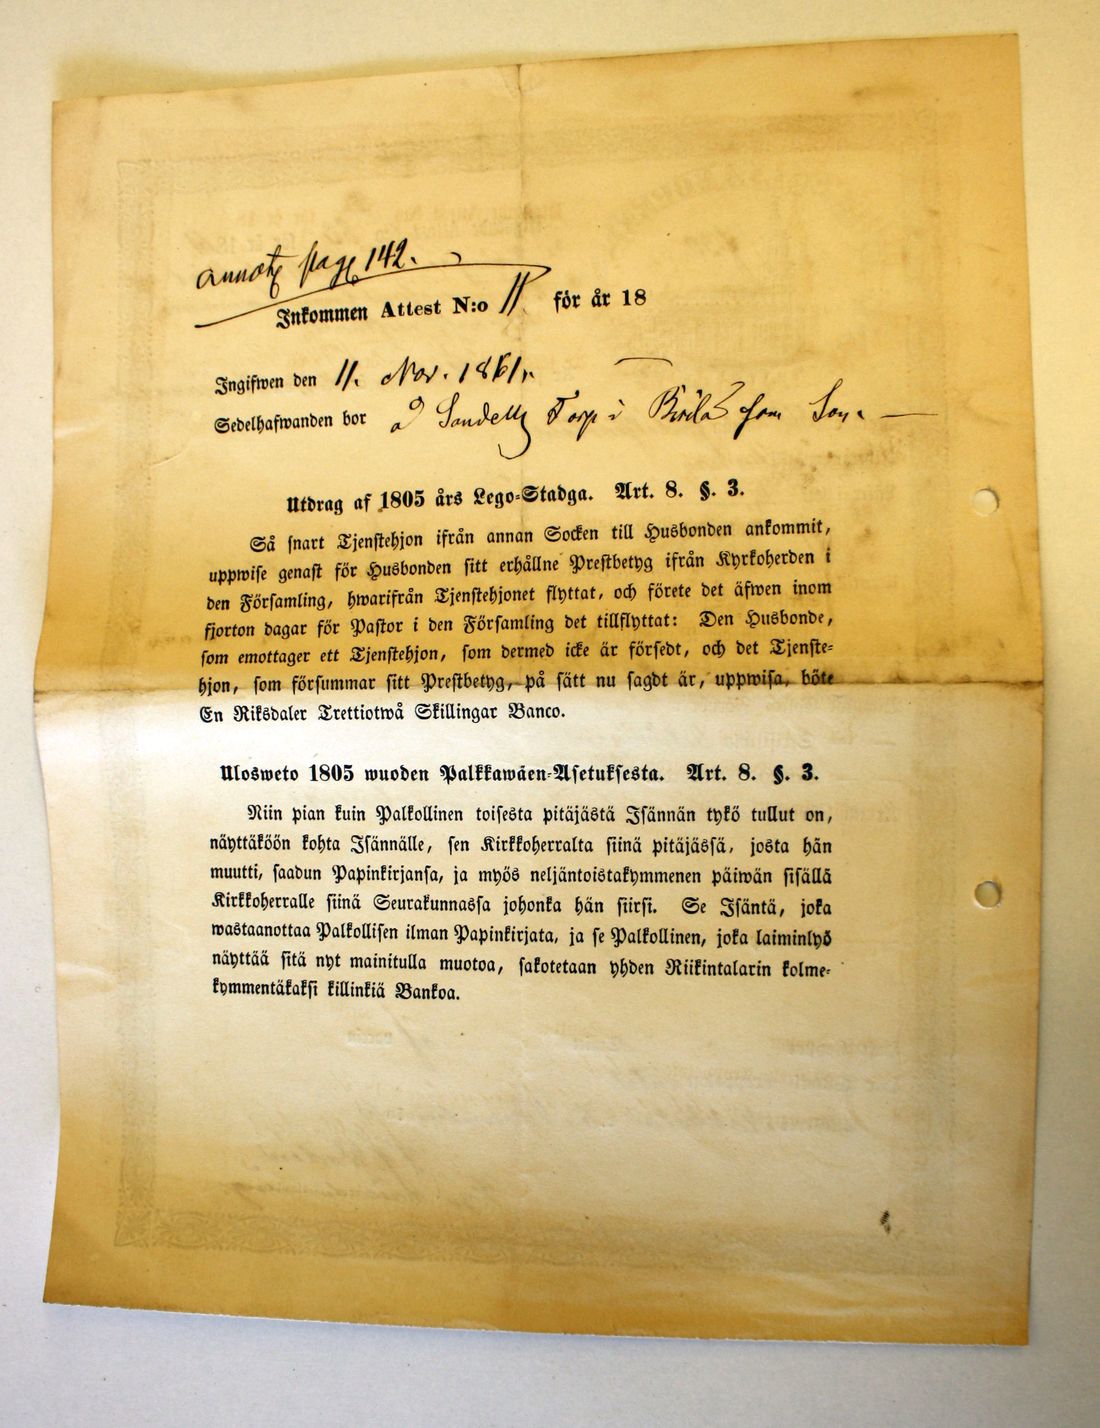 annot pag 142.
Inkommen Attest N:o 11. för år 18
Ingifwen den 11. Nov. 1861.
Sedelhafwanden bor å Sandells Torp i som
Utdrag af 1805 års Lego-Stadga. Art. 8. §. 3.
Så snart Tjenstehjon ifrån annan Socken till Husbonden ankommit,
uppwise genast för Husbonden sitt erhållne Prestbetyg ifrån Kyrkoherden i
den Församling, hwarifrån Tjenstehjonet flyttat, och förete det äfwen inom
fjorton dagar för Pastor i den Församling det tillflyttat: Den Husbonde,
som emottager ett Tjenstehjon, som dermed icke är försedt, och det Tjenste-
hjon, som försummar sitt Prestbetyg, på sätt nu sagdt är, uppwisa, böte
En Riksdaler Trettiotwå Skillingar Banco.
Ulosweto 1805 wuoden Palkkawäen-Asetuksesta. Art. 8. §. 3.
Niin pian kuin Palkollinen toisesta pitäjästä Isännän tykö tullut on,
näyttäköön kohta Isännälle, sen Kirkkoherralta siinä pitäjässä, josta hän
muutti, saadun Papinkirjansa, ja myös neljäntoistakymmenen päiwän sisällä
Kirkkoherralle siinä Seurakunnassa johonka hän siirsi. Se Isäntä, joka
wastaanottaa Palkollisen ilman Papinkirjata, ja se Palkollinen, joka laiminlyö
näyttää sitä nyt mainitulla muotoa, sakotetaan yhden Riikintalarin kolme-
kymmentäkaksi killinkiä Bankoa.